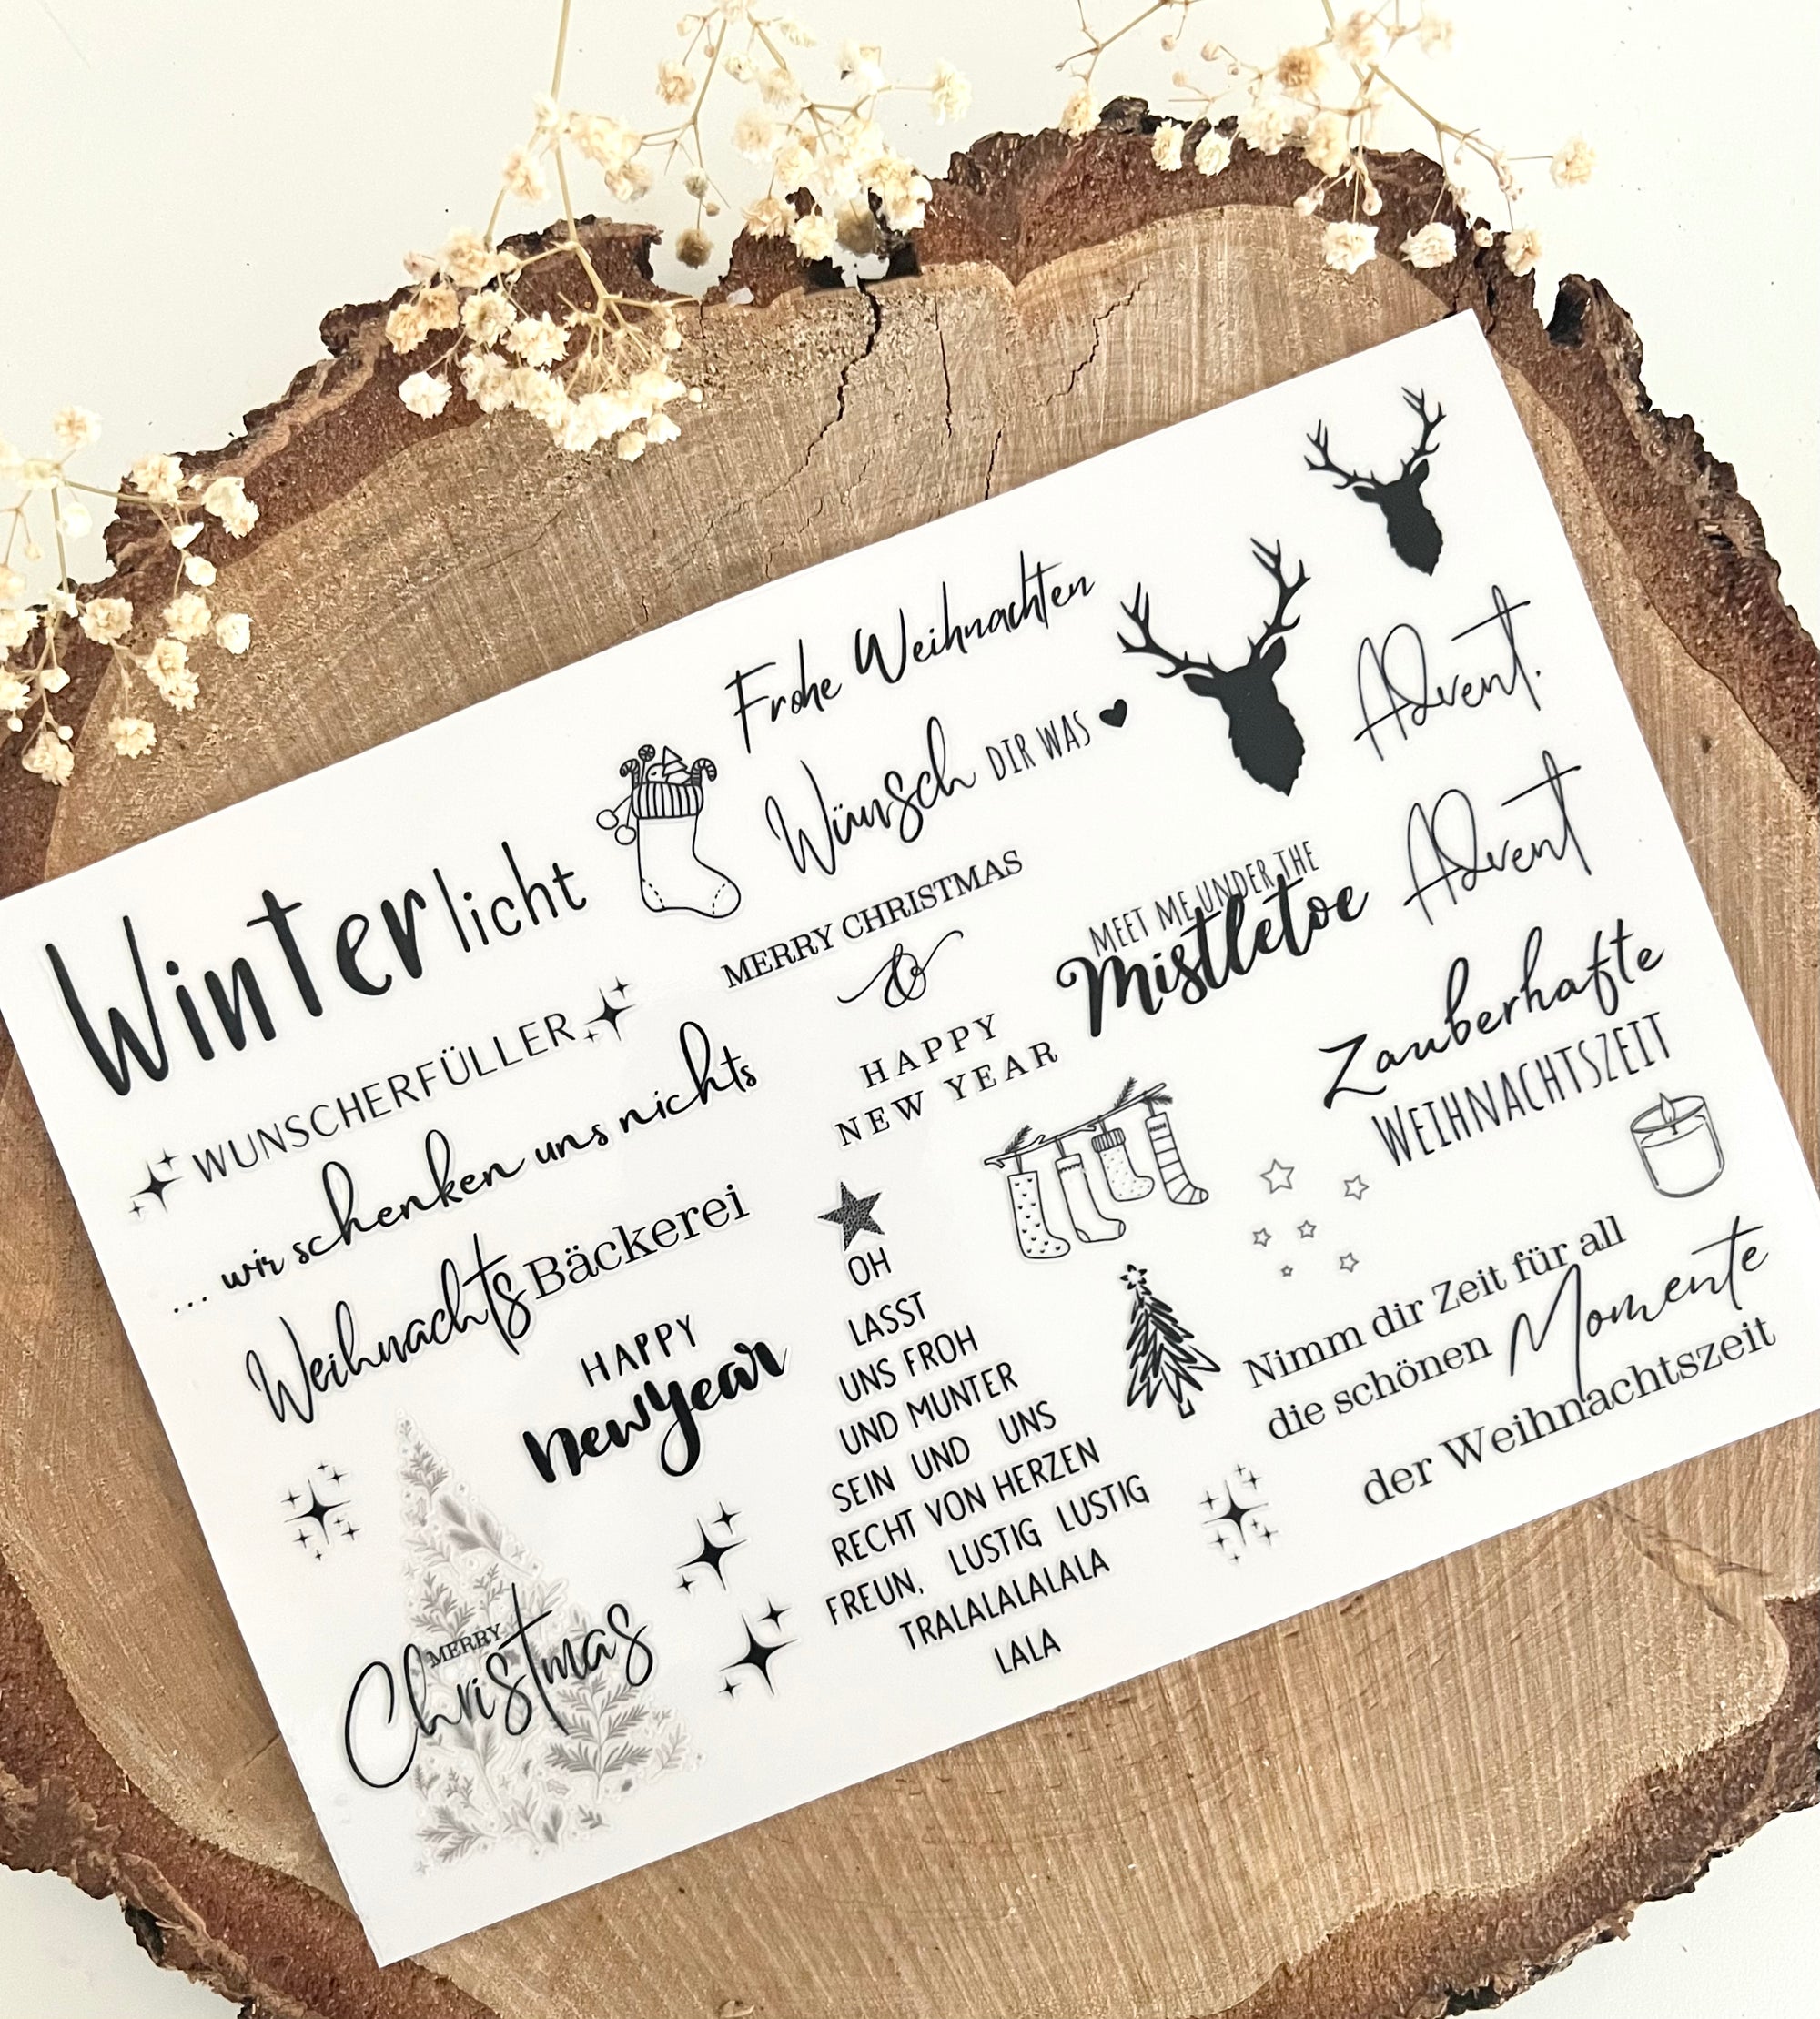 Winterlicht
WUNSCHERFÜLLER
... wir schenken uns nichts
WeihnachtsBäckerei
HAPPY
new year
MERRY
Christmas
Frohe Weihnachten
Wünsch DIR WAS
MERRY CHRISTMAS
&
HAPPY
NEW YEAR
OH
LASST
UNS FROH
UND MUNTER
SEIN UND UNS
RECHT VON HERZEN
FREUN, LUSTIG LUSTIG
TRALALALALALA
LALA
Advent.
Advent
MEET ME UNDER THE
Mistletoe
Zauberhafte
WEIHNACHTSZEIT
Nimm dir Zeit für all
die schönen Momente
der Weihnachtszeit